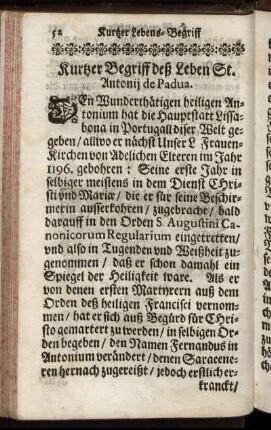 52 Kurtzer Lebens-Begriff
Kurtzer Begriff deß Leben St.
Antonij de Padua.
DEn Wunderthätigen heiligen An-
tonium hat die Hauptstatt Lissa-
bona in Portugall diser Welt ge-
geben / allwo er nächst Unser L. Frauen-
Kirchen von Adelichen Elteren im Jahr
1196. gebohren: Seine erste Jahr in
selbiger meistens in dem Dienst CHri-
sti und Mariæ / die er für seine Beschir-
merin ausserkohren / zugebracht / bald
darauff in den Orden S. Augustini Ca-
nonicorum Regularium eingetretten /
und also in Tugenden und Weißheit zu-
genommen / daß er schon damahl ein
Spiegel der Heiligkeit ware. Als er
von denen ersten Martyrern auß dem
Orden deß heiligen Francisci vernom-
men / hat er sich auß Begürd für CHri-
sto gemartert zu werden / in selbigen Or-
den begeben / den Namen Fernandus in
Antonium verändert / denen Saracene-
ren hernach zugereißt / jedoch erstlich er-
kranckt /